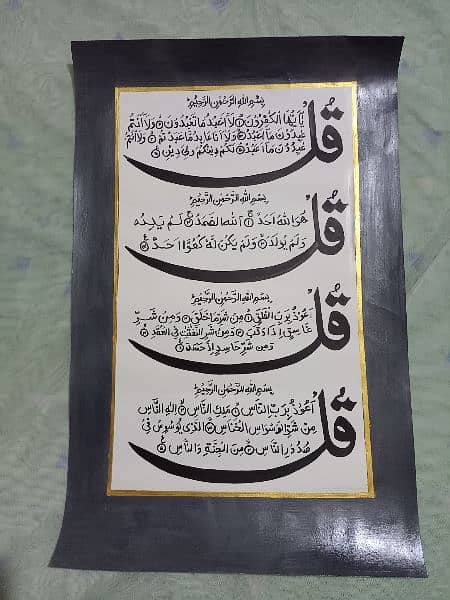 بِسْمِ اللهِ الرَّحْمٰنِ الرَّحِيْمِ
قُلْ يٰٓاَيُّهَا الْكٰفِرُوْنَ لَآ اَعْبُدُ مَا تَعْبُدُوْنَ وَلَآ اَنْتُمْ
عٰبِدُوْنَ مَآ اَعْبُدُ وَلَآ اَنَا عَابِدٌ مَّا عَبَدْتُّمْ وَلَآ اَنْتُمْ
عٰبِدُوْنَ مَآ اَعْبُدُ لَكُمْ دِيْنُكُمْ وَلِيَ دِيْنِ
بِسْمِ اللهِ الرَّحْمٰنِ الرَّحِيْمِ
قُلْ هُوَ اللهُ اَحَدٌ اَللهُ الصَّمَدُ لَمْ يَلِدْ وَ
وَلَمْ يُوْلَدْ وَلَمْ يَكُنْ لَّهٗ كُفُوًا اَحَدٌ
بِسْمِ اللهِ الرَّحْمٰنِ الرَّحِيْمِ
قُلْ اَعُوْذُ بِرَبِّ الْفَلَقِ مِنْ شَرِّ مَا خَلَقَ وَمِنْ شَرِّ
غَاسِقٍ اِذَا وَقَبَ وَمِنْ شَرِّ النَّفّٰثٰتِ فِي الْعُقَدِ
وَمِنْ شَرِّ حَاسِدٍ اِذَا حَسَدَ
بِسْمِ اللهِ الرَّحْمٰنِ الرَّحِيْمِ
قُلْ اَعُوْذُ بِرَبِّ النَّاسِ مَلِكِ النَّاسِ اِلٰهِ النَّاسِ
مِنْ شَرِّ الْوَسْوَاسِ الْخَنَّاسِ الَّذِيْ يُوَسْوِسُ فِيْ
صُدُوْرِ النَّاسِ مِنَ الْجِنَّةِ وَالنَّاسِ